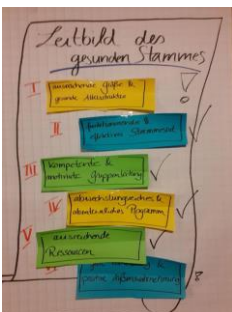 Leitbild des
gesunden Stammes
I
ausreichende Größe &
gesunde Altersstruktur
II
funktionierender &
effektiver Stammesrat
III
kompetente &
motivierte Gruppenleitung
IV
abwechslungsreiches &
altersgerechtes Programm
V
ausreichende
Ressourcen
&
positive Außendarstellung